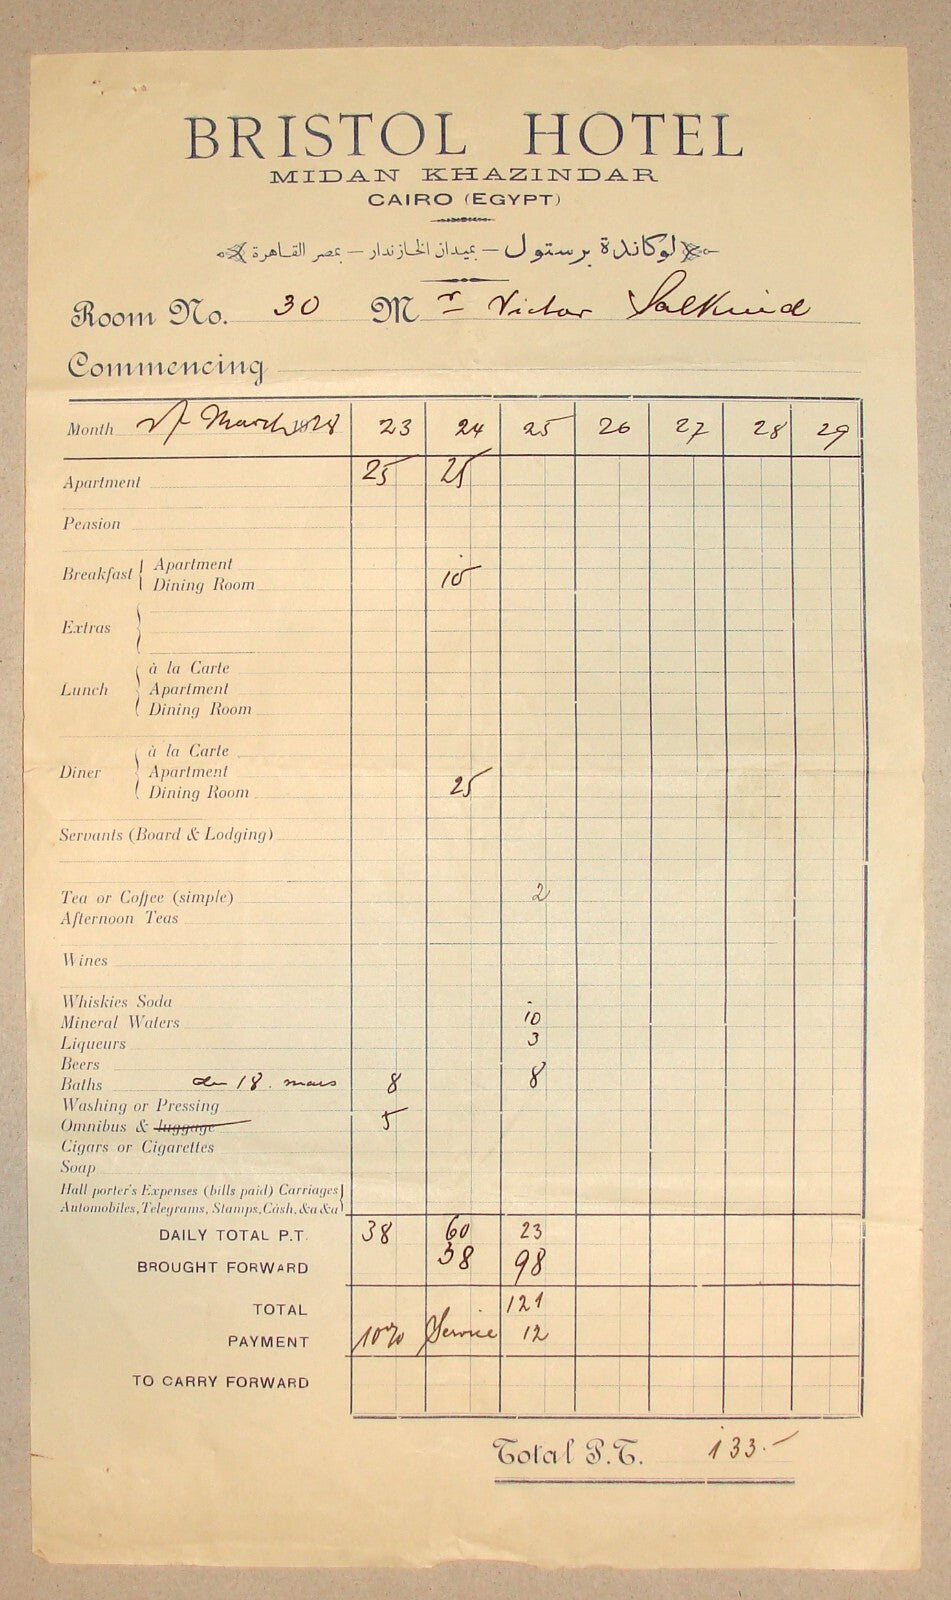 BRISTOL HOTEL
MIDAN KHAZINDAR
CAIRO (EGYPT)
لوكاندة برستول – بميدان الخازندار – بمصر القاهرة
Room No. 30 Mr Victor Salkind
Commencing
Month of March 1928 23 24 25 26 27 28 29
Apartment 25 25
Pension
Breakfast { Apartment
Dining Room 10
Extras
Lunch { à la Carte
Apartment
Dining Room
Diner { à la Carte
Apartment
Dining Room 25
Servants (Board & Lodging)
Tea or Coffee (simple) 2
Afternoon Teas
Wines
Whiskies Soda
Mineral Waters 10
Liqueurs 3
Beers
Baths 18. mars 8 8
Washing or Pressing
Omnibus & luggage 5
Cigars or Cigarettes
Soap
Hall porter's Expenses (bills paid) Carriages
Automobiles, Telegrams, Stamps, Cash, &a &a
DAILY TOTAL P.T. 38 60 23
BROUGHT FORWARD 38 98
TOTAL 121
PAYMENT 10% Service 12
TO CARRY FORWARD
Total P.T. 133.-